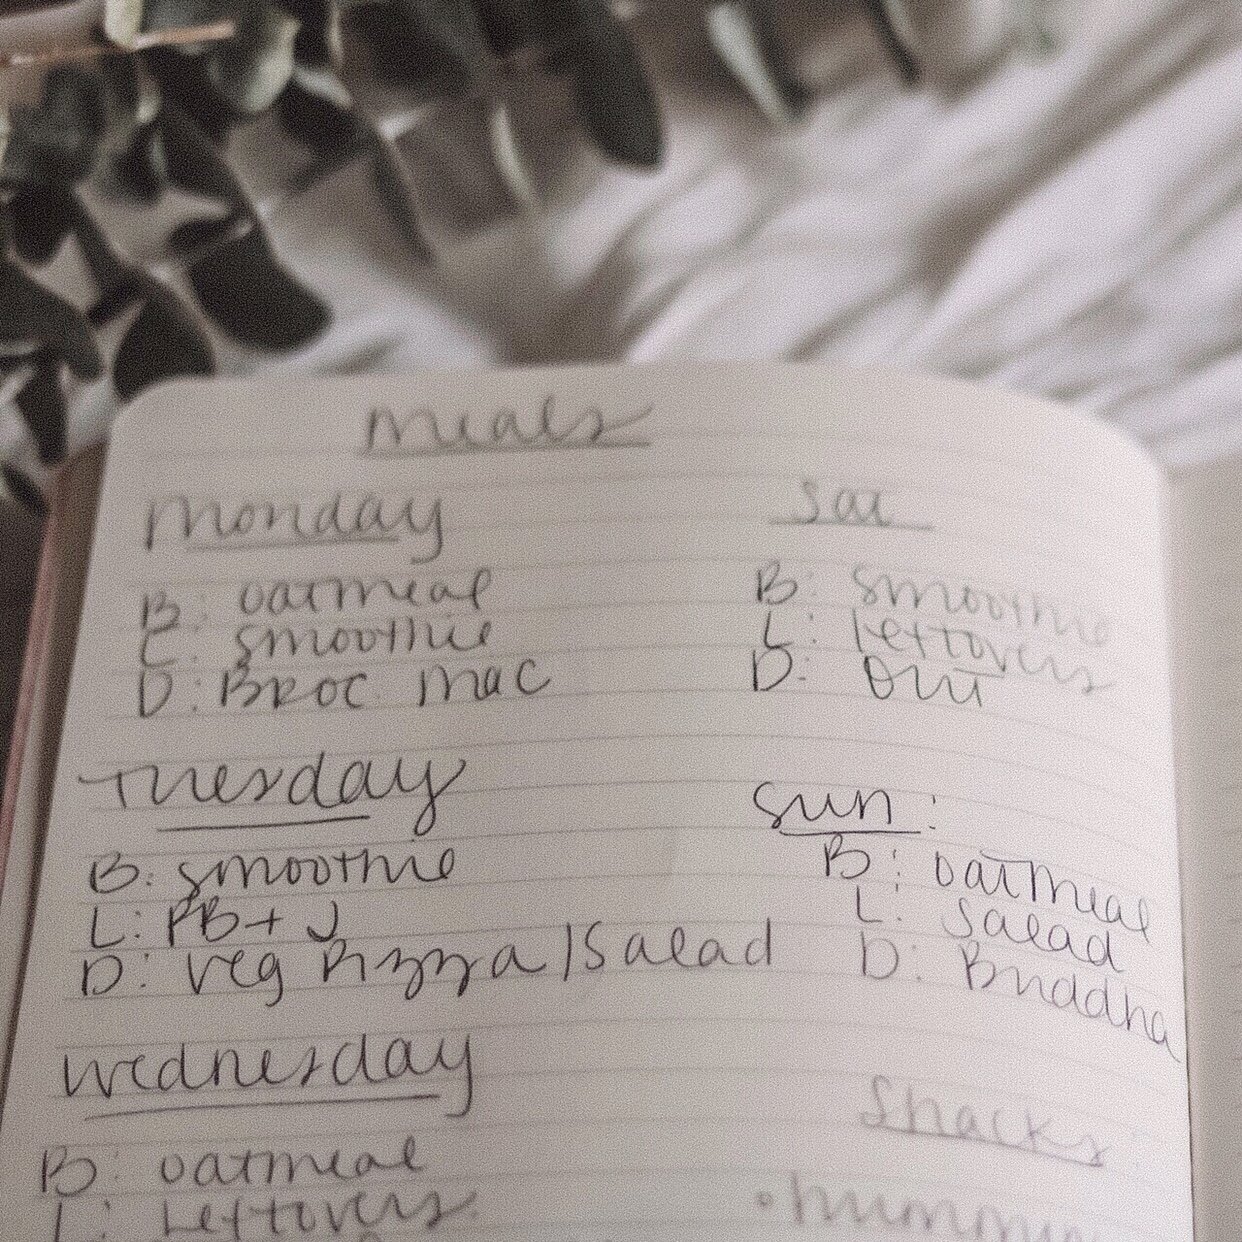 meals
Monday
B: oatmeal
L: smoothie
D: Broc mac
Tuesday
B: smoothie
L: PB + J
D: veg Pizza / Salad
Wednesday
B: oatmeal
L: Leftovers
Sat
B: smoothie
L: leftovers
D: Out
Sun:
B: oatmeal
L: Salad
D: Buddha
Snacks: